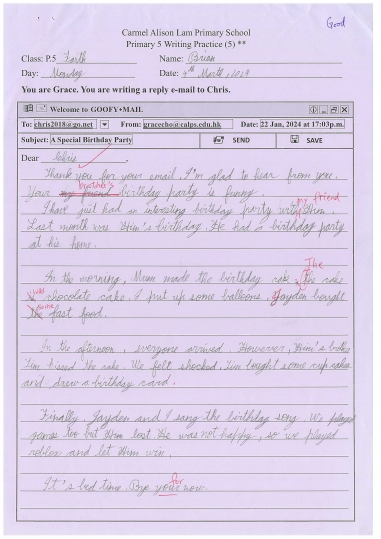 Good
Carmel Alison Lam Primary School
Primary 5 Writing Practice (5) **
Class: P.5 Faith Name: Brian
Day: Monday Date: 4th March, 2024
You are Grace. You are writing a reply e-mail to Chris.
Welcome to GOOFY♦MAIL
To: chris2018@go.net From: gracecho@calps.edu.hk Date: 22 Jan, 2024 at 17:03p.m.
Subject: A Special Birthday Party SEND SAVE
Dear Chris,
Thank you for your email. I'm glad to hear from you.
brother's
Your my friend birthday party is funny.
my friend
I have just had an interesting birthday party with Him.
Last month was Him's birthday. He had a birthday party
at his home.
The
In the morning, Mum made the birthday cake, the cake
was
is chocolate cake. I put up some balloons. Jayden bought
some
the fast food.
In the afternoon, everyone arrived. However, Him's
Tim the cake. We felt shocked. Tim bought some cup cakes
and drew a birthday card.
Finally, Jayden and I sang the birthday song. We played
games too but Him lost. He was not happy, so we played
roblox and let Him win.
for
It's bed time. Bye your now.